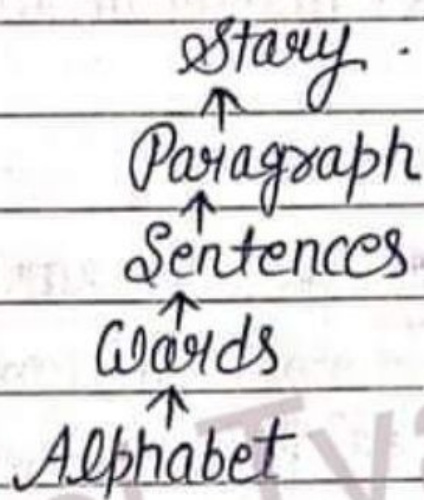 Story .
↑
Paragraph
↑
Sentences
↑
Words
↑
Alphabet